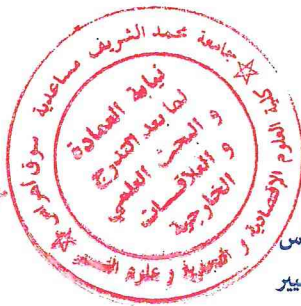 جامعة محمد الشريف مساعدية سوق أهراس
كلية العلوم الاقتصادية و التجارية و علوم التسيير
نيابة العمادة
لما بعد التدرج
و البحث العلمي
و العلاقات
الخارجية
س
يير